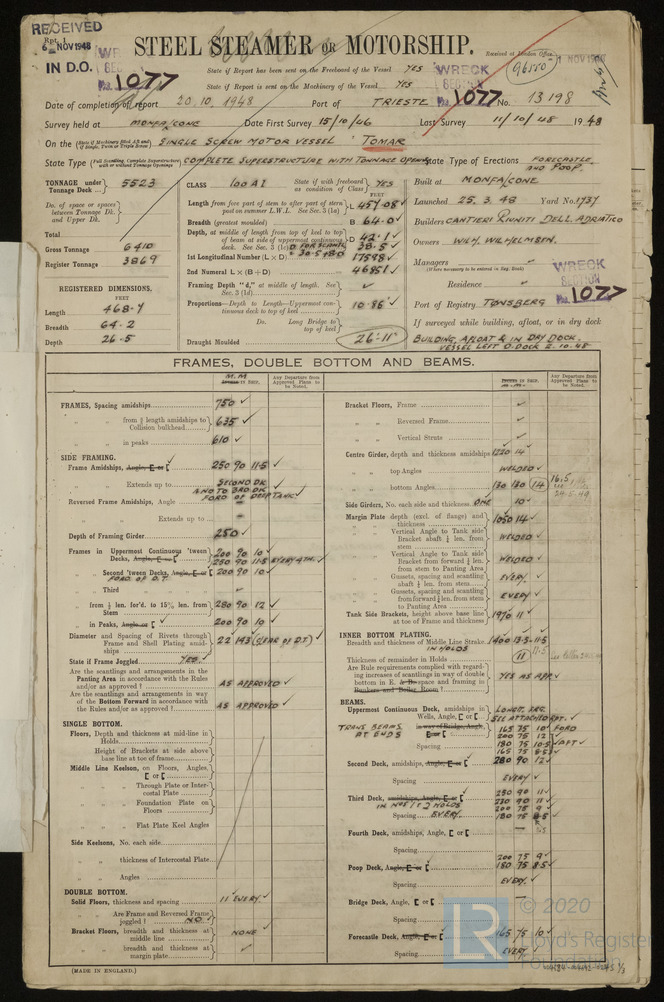 RECEIVED
Rpt. 1.
6 NOV 1948
IN D.O.
STEEL STEAMER OR MOTORSHIP.
Received at London Office
State if Report has been sent on the Freeboard of the Vessel YES
State if Report is sent on the Machinery of the Vessel YES
WRECK SECTION
No. 1077
Date of completion of report 20.10.1948 Port of TRIESTE No. 13198
Survey held at MONFALCONE Date First Survey 15/10/46 Last Survey 11/10/48 1948
On the SINGLE SCREW MOTOR VESSEL "TOMAR"
State Type COMPLETE SUPERSTRUCTURE WITH TONNAGE OPENING State Type of Erections FORECASTLE AND POOP.
TONNAGE under Tonnage Deck 5523
Do. of space or spaces between Tonnage Dk. and Upper Dk.
Total
Gross Tonnage 6410
Register Tonnage 3869
REGISTERED DIMENSIONS.
FEET
Length 468.7
Breadth 64.2
Depth 26.5
CLASS 100 A1 State if with freeboard as condition of Class YES
FEET
Length from fore part of stem to after part of stern post on summer L.W.L. See Sec. 3 (1a) L 457.08
Breadth (greatest moulded) B 64.0
Depth, at middle of length from top of keel to top of beam at side of uppermost continuous deck. See Sec. 3 (1c) D 42.1
38.5
1st Longitudinal Number (L × D) 17598
2nd Numeral L × (B + D) 46851
Framing Depth "d," at middle of length. See Sec. 3 (1d)
Proportions—Depth to Length—Uppermost continuous deck to top of keel 10.86
Do. Long Bridge to top of keel
Draught Moulded 26'-11"
Built at MONFALCONE
Launched 25.3.48 Yard No. 1737
Builders CANTIERI RIUNITI DELL ADRIATICO
Owners WILH. WILHELMSEN.
Managers
(Where necessary to be entered in Reg. Book)
Residence
Port of Registry TONSBERG
WRECK SECTION
No. 1077
If surveyed while building, afloat, or in dry dock
BUILDING, AFLOAT & IN DRY DOCK.
VESSEL LEFT D.DOCK 2.10.48
FRAMES, DOUBLE BOTTOM AND BEAMS.
M.M
Any Departure from Approved Plans to be Noted.
FRAMES, Spacing amidships 750
" " from 3/5 length amidships to Collision bulkhead 635
" " in peaks 610
SIDE FRAMING.
Frame Amidships, Angle, E or [ 250 90 11.5
" " Extends up to SECOND DK AND TO 3RD DK FORD OF DEEP TANK
Reversed Frame Amidships, Angle
" " Extends up to
Depth of Framing Girder 250
Frames in Uppermost Continuous 'tween Decks, Angle, E or [ 200 90 10
250 90 11.5 EVERY 4TH.
" Second 'tween Decks, Angle, E or [ 200 90 10
FORD OF D.T.
" Third " "
" from 1/5 len. for'd. to 15% len. from Stem 280 90 12
" in Peaks, Angle or [ 200 90 10
Diameter and Spacing of Rivets through Frame and Shell Plating amidships 22 143 (CLEAR OF D.T)
State if Frame Joggled YES.
Are the scantlings and arrangements in the Panting Area in accordance with the Rules and/or as approved? AS APPROVED
Are the scantlings and arrangements in way of the Bottom Forward in accordance with the Rules and/or as approved? AS APPROVED
SINGLE BOTTOM.
Floors, Depth and thickness at mid-line in Holds
Height of Brackets at side above base line at toe of frame
Middle Line Keelson, on Floors, Angles, E or [
" " Through Plate or Intercostal Plate
" " Foundation Plate on Floors
" " Flat Plate Keel Angles
Side Keelsons, No. each side
" " thickness of Intercostal Plate
" " Angles
DOUBLE BOTTOM.
Solid Floors, thickness and spacing 11 EVERY.
" " Are Frame and Reversed Frame joggled? NO
Bracket Floors, breadth and thickness at middle line NONE
" " breadth and thickness at margin plate
Any Departure from Approved Plans to be Noted.
Bracket Floors, Frame
" " Reversed Frame
" " Vertical Struts
Centre Girder, depth and thickness amidships 1220 14
" " top Angles WELDED
" " bottom Angles 130 130 14
Side Girders, No. each side and thickness ONE 10
Margin Plate depth (excl. of flange) and thickness 1050 14
" Vertical Angle to Tank side Bracket abaft 1/4 len. from stem WELDED
" Vertical Angle to Tank side Bracket from forward 1/4 len. from stem to Panting Area WELDED
" Gussets, spacing and scantling abaft 1/4 len. from stem EVERY
" Gussets, spacing and scantling from forward 1/4 len. from stem to Panting Area EVERY
Tank Side Brackets, height above base line at toe of Frame and thickness 1970 11
INNER BOTTOM PLATING.
Breadth and thickness of Middle Line Strake 1400 13.5-11.5
IN HOLDS
Thickness of remainder in Holds 11
Are Rule requirements complied with regarding increases of scantlings in way of double bottom in E. & B. space and framing in Bunkers and Boiler Room? YES AS APP.
BEAMS.
Uppermost Continuous Deck, amidships in Wells, Angle, E or [ LONGT. FRG.
SEE ATTACHED RPT.
TRANS BEAMS AT ENDS
" " in way of Bridge, Angle, E or [ 165 75 10 FORD
200 75 12
Spacing 180 75 10.5 AFT
165 75 8.5
Second Deck, amidships, Angle, E or [ 280 90 12
Spacing EVERY
Third Deck, amidships, Angle, E or [ 250 90 11
IN NOS 1 & 2 HOLDS 230 90 11
200 75 9
Spacing EVERY. 180 75 8.5
Fourth Deck, amidships, Angle, E or [
Spacing
Poop Deck, Angle, E or [ 200 75 9
180 75 8.5
Spacing EVERY.
Bridge Deck, Angle, E or [
Spacing
Forecastle Deck, Angle, E or [ 165 75 10
Spacing EVERY
(MADE IN ENGLAND.)
LR
© 2020
Lloyd's Register
Foundation